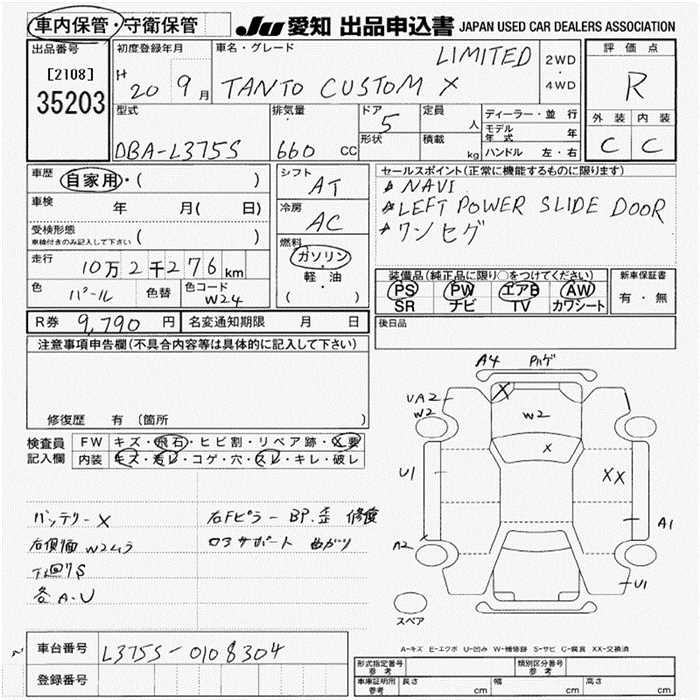 車内保管・守衛保管 JU 愛知 出品申込書 JAPAN USED CAR DEALERS ASSOCIATION
出品番号 初度登録年月 車名・グレード 評価点
[2108] H 20 9月 TANTO CUSTOM X LIMITED 2WD・4WD R
35203
型式 排気量 ドア 定員 ディーラー・並行 外装 内装
DBA-L375S 660 CC 5 人 モデル年式 年 C C
形状 積載 kg ハンドル 左・右
車歴 自家用・( ) シフト AT セールスポイント(正常に機能するものに限ります)
車検 年 月( 日) 冷房 AC * NAVI
* LEFT POWER SLIDE DOOR
受検形態 ( ) * ワンセグ
車検付きのみ記入して下さい
燃料
走行 10万2千276km ガソリン・軽・油
( )
装備品(純正品に限り○をつけてください) 新車保証書
色 パール 色替 色コード W24 PS PW エアB AW 有・無
SR ナビ TV カワシート
R券 9,790円 名変通知期限 月 日 後日品
注意事項申告欄(不具合内容等は具体的に記入して下さい)
修復歴 有 (箇所 )
検査員記入欄 FW キズ・飛石・ヒビ割・リペア跡・X要
内装 キズ・汚レ・コゲ・穴・スレ・キレ・破レ
バッテリーX 右Fピラー BP.歪 修復
右側面W2ムラ コアサポート 曲がり
下回りS
各A.U
車台番号 L375S-0108304
登録番号
A4 ハゲ
UA2
W2
W2
X
X
U1
XX
A1
A2
U1
スペア
A-キズ E-エクボ U-凹み W-補修跡 S-サビ C-腐食 XX-交換済
形式指定番号 参考 類別区分番号 参考
車庫証明用 参考 長さ cm 幅 cm 高さ cm